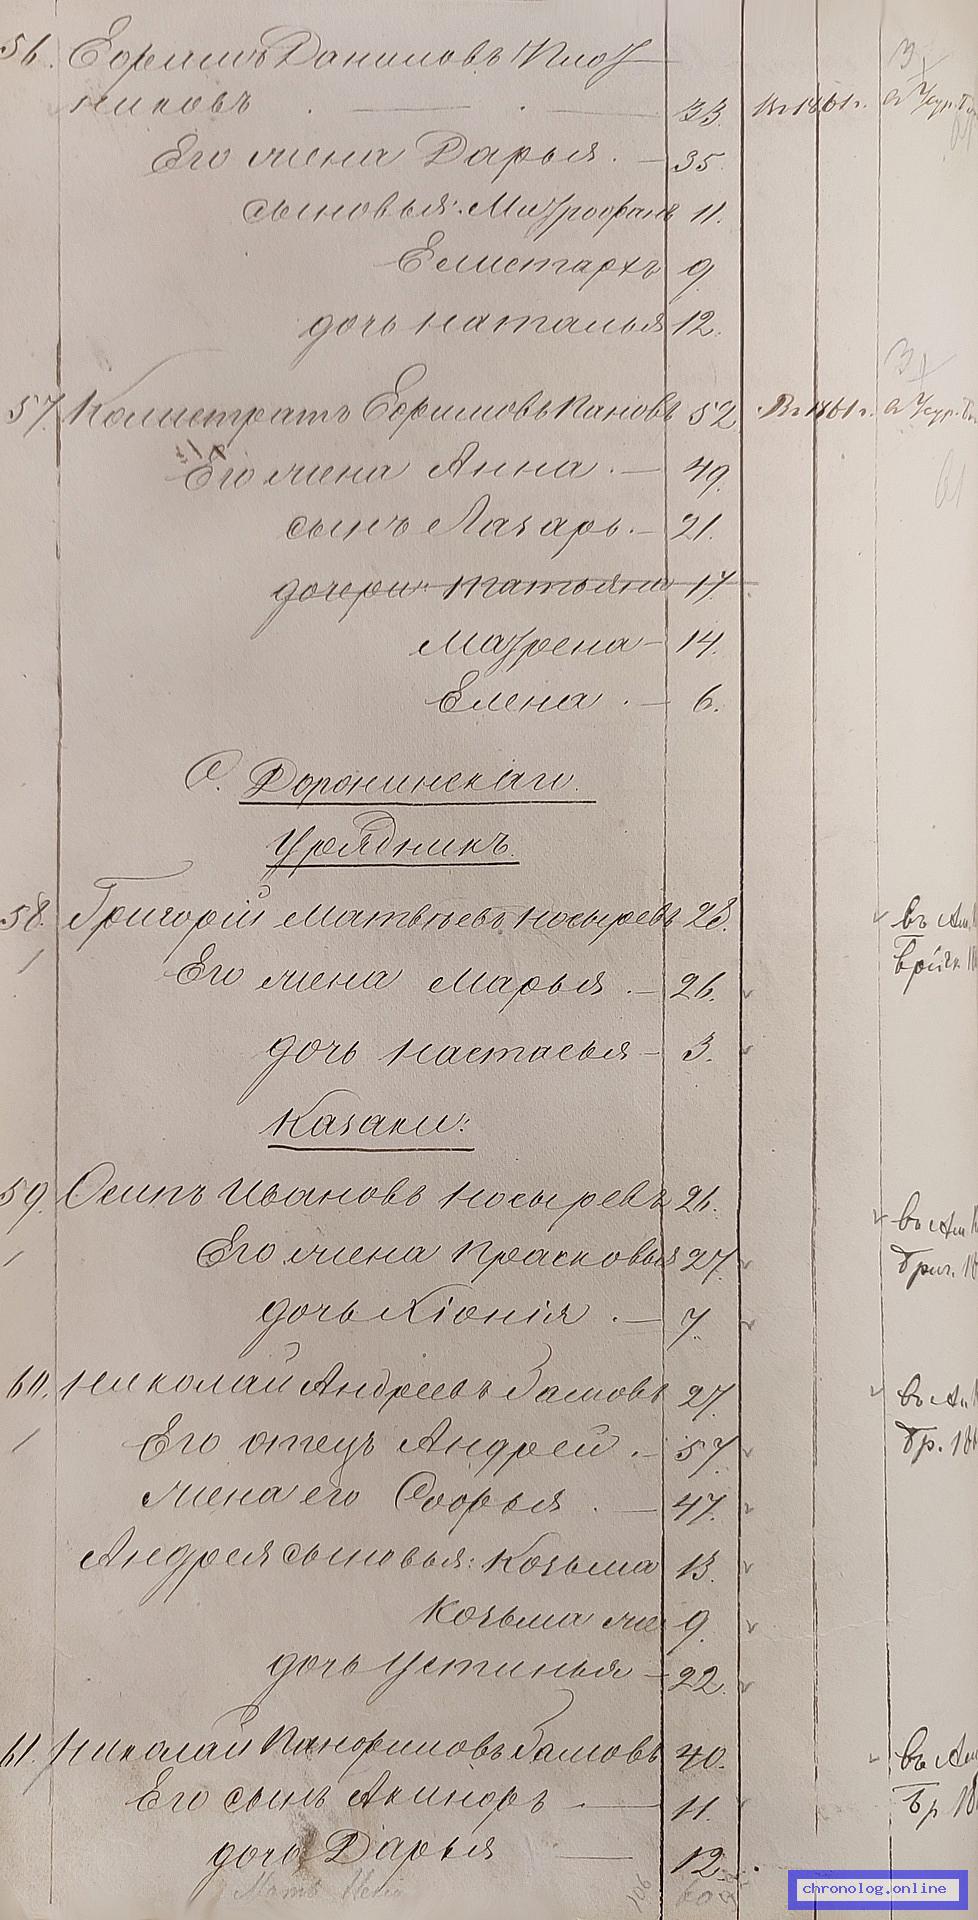 56. Ефимъ Даниловъ Плот
никовъ . — . — 33. Въ 1861 г.
Его жена Дарья . — 35.
сыновья: Митрофанъ 11.
Елистархъ 9
дочь Наталья 12.
57. Калистратъ Ефимовъ Пановъ 52. Въ 1861 г.
Его жена Анна . — 49.
сынъ Лазарь. — 21.
дочери: Татьяна 17
Матрена — 14.
Елена . — 6.
С. Доронинскаго.
Урядникъ.
58. Григорій Матвѣевъ Носыревъ 28. въ Ам.
1 Его жена Марья . — 26.
дочь Настасья — 3.
Казаки:
59. Осипъ Ивановъ Носыревъ 26. въ Ам
1 Его жена Прасковья 27.
дочь Хіонія . — 7.
60. Николай Андреевъ Замовъ 27. въ Ам
1 Его отецъ Андрей . — 57. бр. 18
жена его Софья . — 47.
Андрея сыновья: Козьма 13.
Козьма же 9.
дочь Устинья — 22.
61. Николай Панфиловъ Замовъ 40. въ Ам
Его сынъ Акинфъ . — 11. бр 18
дочь Дарья — 12.
chronolog.online